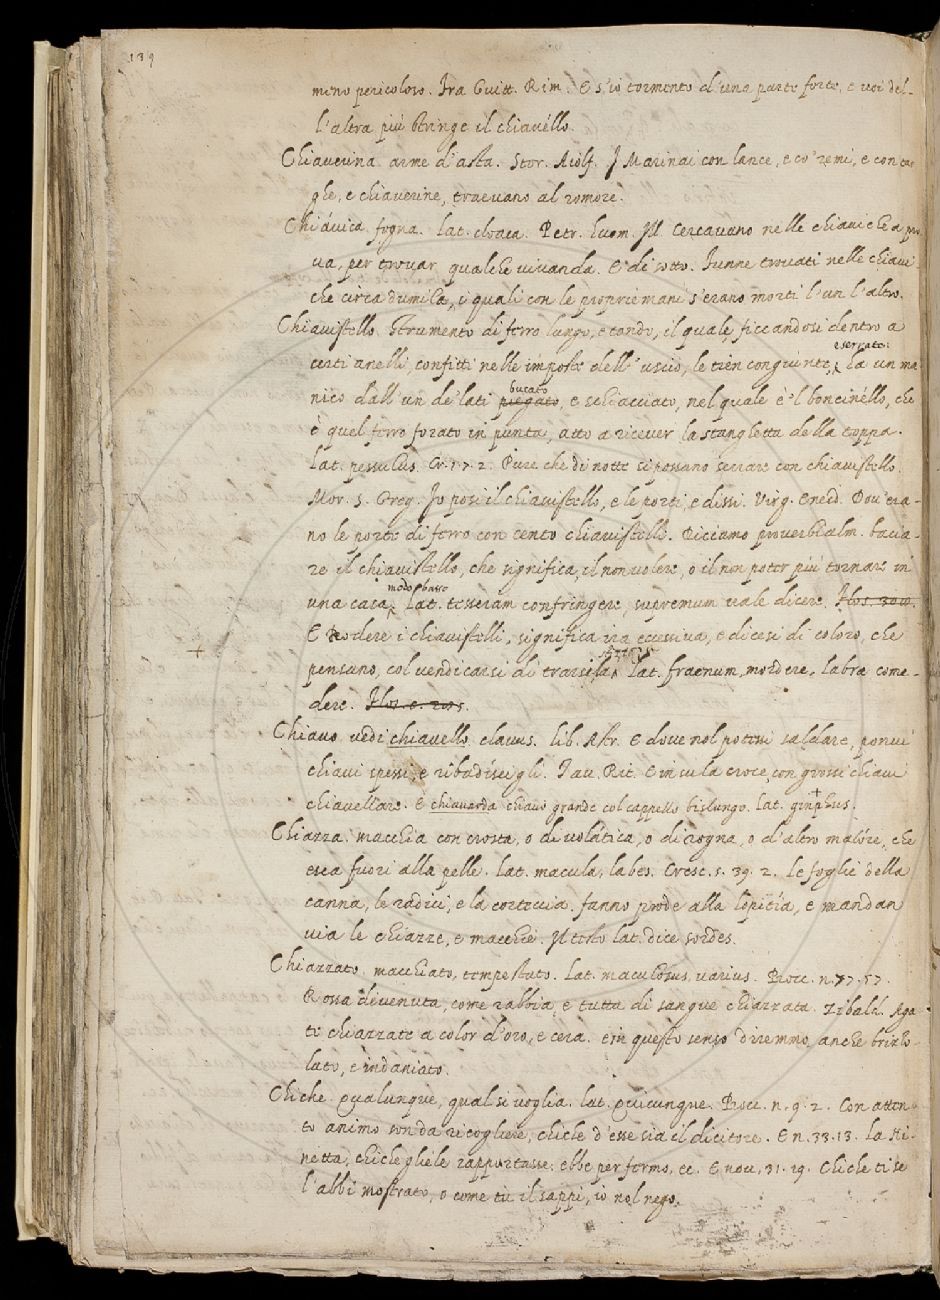 139
meno pericoloso. Fra Guitt. Rim. E s'io tormento d'una parte forte, e voi del-
l'altra più stringe il chiavéllo.
Chiaverina arme d'asta. Stor. Aiolf. I Marinai con lance, e co' remi, e con
ghe, e chiaverine, traevano al romore.
Chiávica fogna. lat. cloaca. Petr. huom. Ill. Cercavano nelle chiaviche a pro
va, per trovar qualche vivanda. E di sotto. Funne trovati nelle chiavi-
che circa dumila, i quali con le proprie mani s'erano morti l'un l'altro.
Chiavistello. Strumento di ferro lungo, e tondo, il quale, ficcandosi dentro a
e serrate:
certi anelli, confitti nelle imposte dell'uscio, le tien congiunte, ha un ma-
bucato
nico dall'un de' lati piegato, e schiacciato, nel quale è 'l boncinéllo, che
è quel ferro forato in punta, atto a ricever la stanghetta della toppa.
Lat. pessulus. Cr. 1. 7. 2. Pure che di notte si possano serrare con chiavistello.
Mor. S. Greg. Io posi il chiavistello, e le porti, e dissi. Virg. Eneid. Dov'era-
no le porte di ferro con cento chiavistelli. Diciamo proverbialm. bacia-
re il chiavistello, che significa, il non volere, o il non poter più tornare in
modo basso
una casa, Lat. tesseram confringere, supremum vale dicere. Flos. 300.
E Rodere i chiavistelli, significa ira eccessiva, e dicesi di coloro, che
pensano, col vendicarsi di trarsela, Lat. fraenum mordere, labra come-
dere. Flos. e. 205.
Chiavo vedi chiavello clavus. lib. Astr. E dove nol potessi saldare, ponvi
chiavi spessi, e ribadíscigli. Tav. Rit. E in su la croce, con grossi chiavi
chiavellare. E chiavarda chiavo grande col cappello bislungo. Lat. gomphus.
Chiazza. macchia con crosta, o di volática, o di rogna, o d'altro malóre, che
esca fuori alla pelle. Lat. macula, labes. Cresc. 5. 39. 2. Le foglie della
canna, le radici, e la corteccia fanno prode alla lopitía, e mandan
via le chiazze, e macchie. Il testo lat. dice sordes.
Chiazzato. macchiato, tempestato. Lat. maculosus, varius. Bocc. n. 77. 57.
Rossa divenuta, come rabbia, e tutta di sangue chiazzata. Zibald. Aga-
te chiazzate a color d'oro, e cera. e in questo senso diremmo anche brizzo-
lato, e indaniato.
Chiche. Qualunque, qual si voglia. lat. Quicunque. Bocc. n. 9. 2. Con atten-
to animo son da ricogliere, chiche d'esse sia il dicitore. E n. 33. 13. La Ni-
netta, chiche gliele rapportasse. ebbe per fermo, ec. E nov. 31. 19. Chiche ti se
l'abbi mostrato, o come tù il sappi, io nol nego.